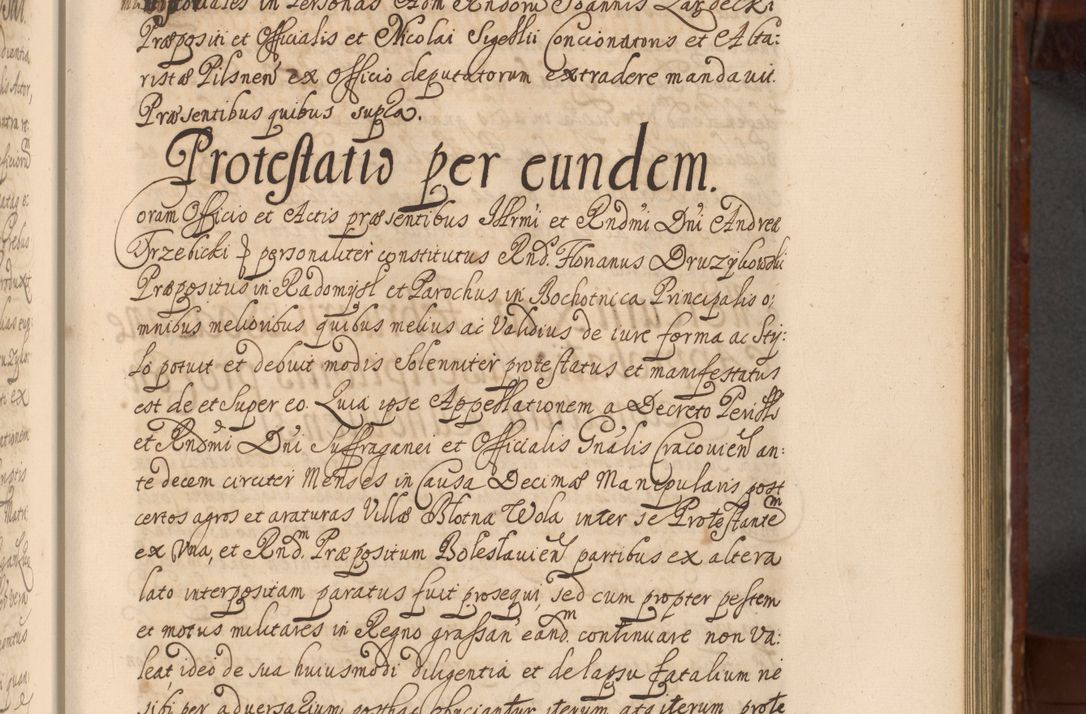 in Personas Adm Rndorū Joannis Lazdecki
Præpositi et Officialis et Nicolai Sigellii Concionatoris et Alta:
ristæ Pilsneñ ex Officio deputatorum extradere mandauit.
Præsentibus quibus supra.
Protestatio per eundem.
Coram Officio et Actis præsentibus Illrmi et Rndmi Dni Andreæ
Trzebicki personaliter constitutus Rnd. Florianus Druzykowski
Præpositus in Radomysl et Parochus in Bochotnica Principalis o:
mnibus melioribus quibus melius ac Validius de iure forma ac Sty:
lo potuit et debuit modis Solenniter protestatus et manifestatus
est de et Super eo. Quia ipse Appellationem a Decreto Perillis
et Rndmi Dni Suffraganei et Officialis Gnalis Cracovieñ an:
te decem circiter Menses in Causa Decimæ Manipularis post
certos agros et araturas Villæ Błotna Wola inter se Protestantem
ex Vna, et Rndm Præpositum Boleslavieñ partibus ex altera
lato interpositam paratus fuit prosequi, sed cum propter pestem
et motus militares in Regno grassan eandm continuare non Va:
leat ideo de sua huiusmodi diligentia et de lapsu fatalium ne
sibi per adversarium posthac obijciantur iterum atq iterum prote